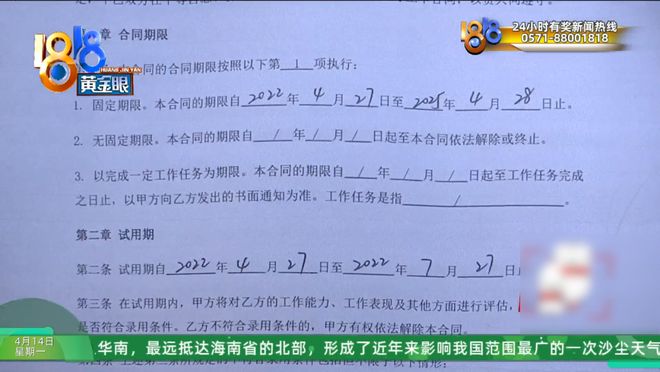 章 合同期限
合同的合同期限按照以下第 1 项执行：
1. 固定期限。本合同的期限自 2022 年 4 月 27 日至 2025 年 4 月 28 日止。
2. 无固定期限。本合同的期限自 / 年 / 月 / 日起至本合同依法解除或终止。
3. 以完成一定工作任务为期限。本合同的期限自 / 年 / 月 / 日起至工作任务完成
之日止，以甲方向乙方发出的书面通知为准。工作任务是指 / 。
第二章 试用期
第二条 试用期自 2022 年 4 月 27 日至 2022 年 7 月 27 日
第三条 在试用期内，甲方将对乙方的工作能力、工作表现及其他方面进行评估，
是否符合录用条件。乙方不符合录用条件的，甲方有权依法解除本合同。
1818
黄金眼
24小时有奖新闻热线
0571-88001818
4月14日
星期一
华南，最远抵达海南省的北部，形成了近年来影响我国范围最广的一次沙尘天气